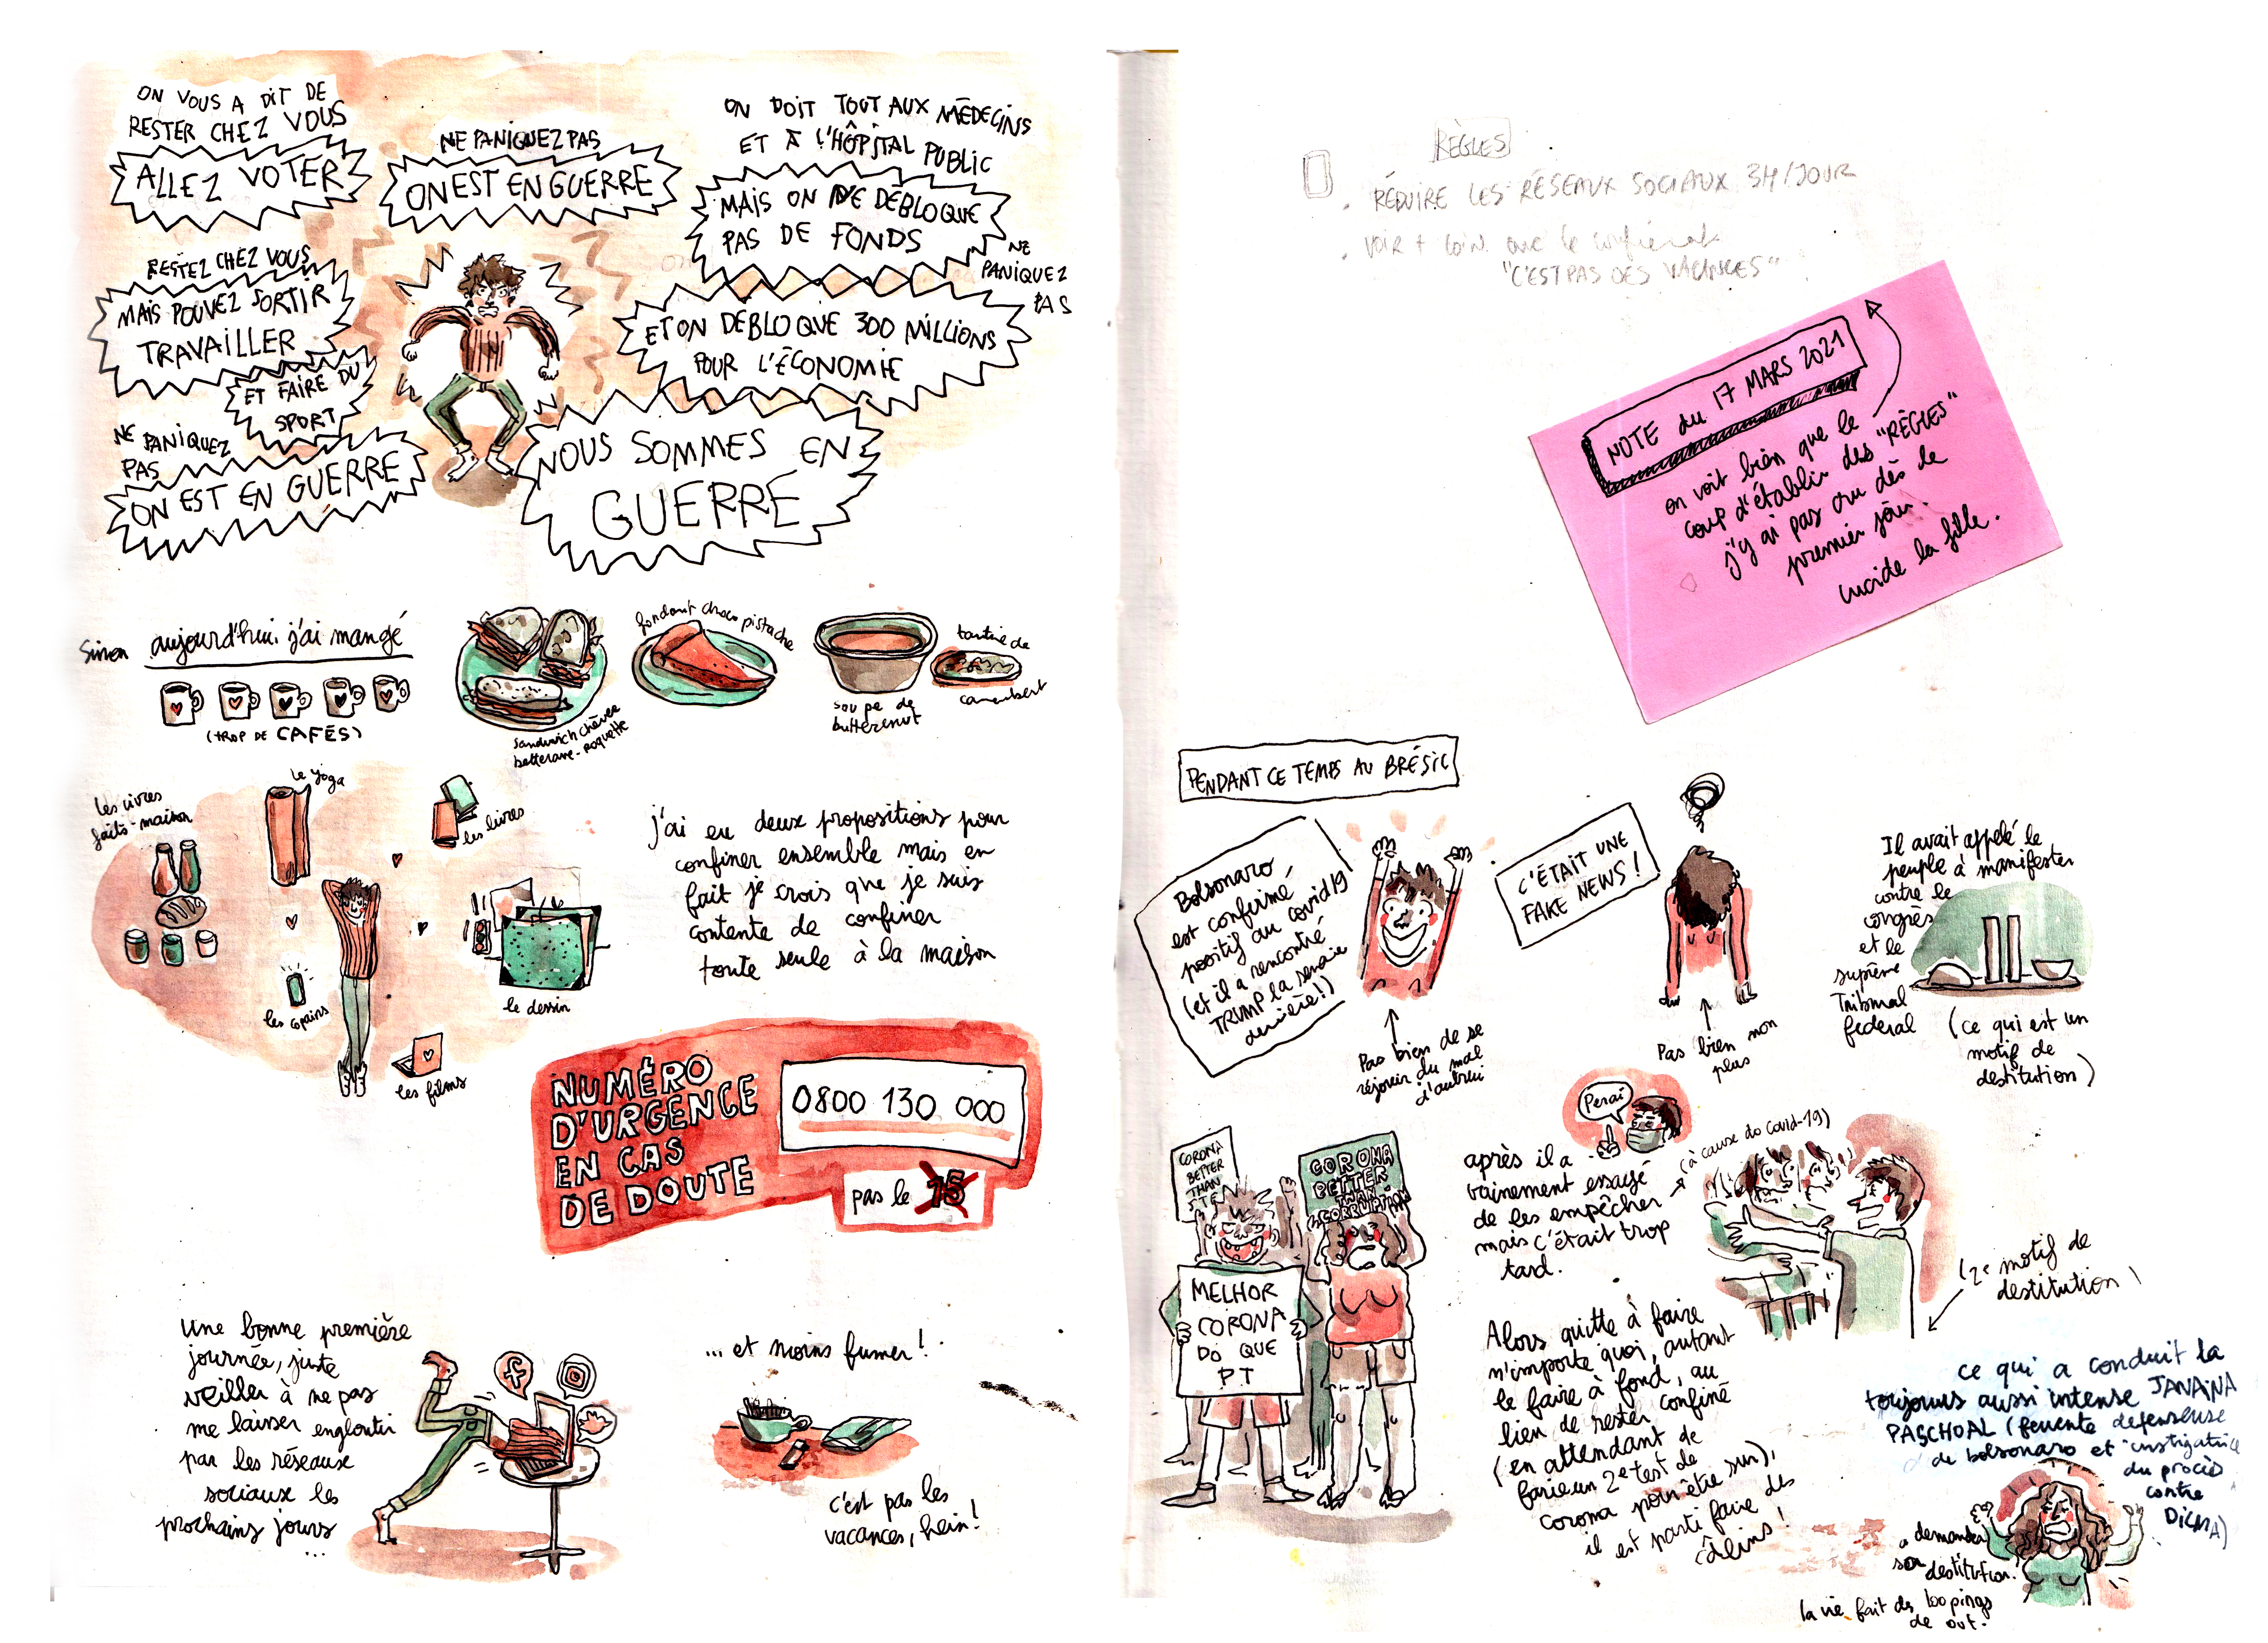 ON VOUS A DIT DE
RESTER CHEZ VOUS
ALLEZ VOTER
NE PANIQUEZ PAS
ON EST EN GUERRE
ON DOIT TOUT AUX MÉDECINS
ET À L'HÔPITAL PUBLIC
MAIS ON NE DÉBLOQUE
PAS DE FONDS
NE
PANIQUEZ
PAS
RESTEZ CHEZ VOUS
MAIS POUVEZ SORTIR
TRAVAILLER
ET FAIRE DU
SPORT
ET ON DÉBLOQUE 300 MILLIONS
POUR L'ÉCONOMIE
NE PANIQUEZ
PAS
ON EST EN GUERRE
NOUS SOMMES EN
GUERRE
Sinon aujourd'hui j'ai mangé
(TROP DE CAFÉS)
sandwich chèvre
betterave-roquette
fondant choco pistache
soupe de
butternut
tartine de
camembert
les vivres
faits-maison
le yoga
les livres
les copains
le dessin
les films
j'ai eu deux propositions pour
confiner ensemble mais en
fait je crois que je suis
contente de confiner
toute seule à la maison
NUMÉRO
D'URGENCE
EN CAS
DE DOUTE
0800 130 000
pas le 15
Une bonne première
journée, juste
veiller à ne pas
me laisser engloutir
par les réseaux
sociaux les
prochains jours
...
... et moins fumer !
c'est pas les
vacances, hein !
RÈGLES
. RÉDUIRE LES RÉSEAUX SOCIAUX 3H/JOUR
. voir + loin que le
"C'EST PAS DES VACANCES"
NOTE du 17 MARS 2021
on voit bien que le
coup d'établir des "RÈGLES"
j'y ai pas cru dès le
premier jour.
lucide la fille.
PENDANT CE TEMPS AU BRÉSIL
Bolsonaro
est confirmé
positif au covid19
(et il a rencontré
TRUMP la semaine
dernière !)
Pas bien de se
réjouir du mal
d'autrui
C'ÉTAIT UNE
FAKE NEWS !
Pas bien non
plus
Il avait appelé le
peuple à manifester
contre le
congrès
et le
suprême
Tribunal
federal
(ce qui est un
motif de
destitution)
CORONA
BETTER
THAN
CORONA
BETTER
THAN
CORRUPTION
MELHOR
CORONA
DO QUE
PT
Perai
après il a
vainement essayé
de les empêcher
mais c'était trop
tard.
(à cause do covid-19)
(2e motif de
destitution)
Alors quitte à faire
n'importe quoi, autant
le faire à fond, au
lieu de rester confiné
(en attendant de
faire un 2e test de
corona pour être sur),
il est parti faire des
câlins !
ce qui a conduit la
toujours aussi intense JANAINA
PASCHOAL (fervente defenseuse
de bolsonaro et instigatrice
du procès
contre
DILMA)
a demandé
son
destitution.
la vie fait des loopings
de ouf.